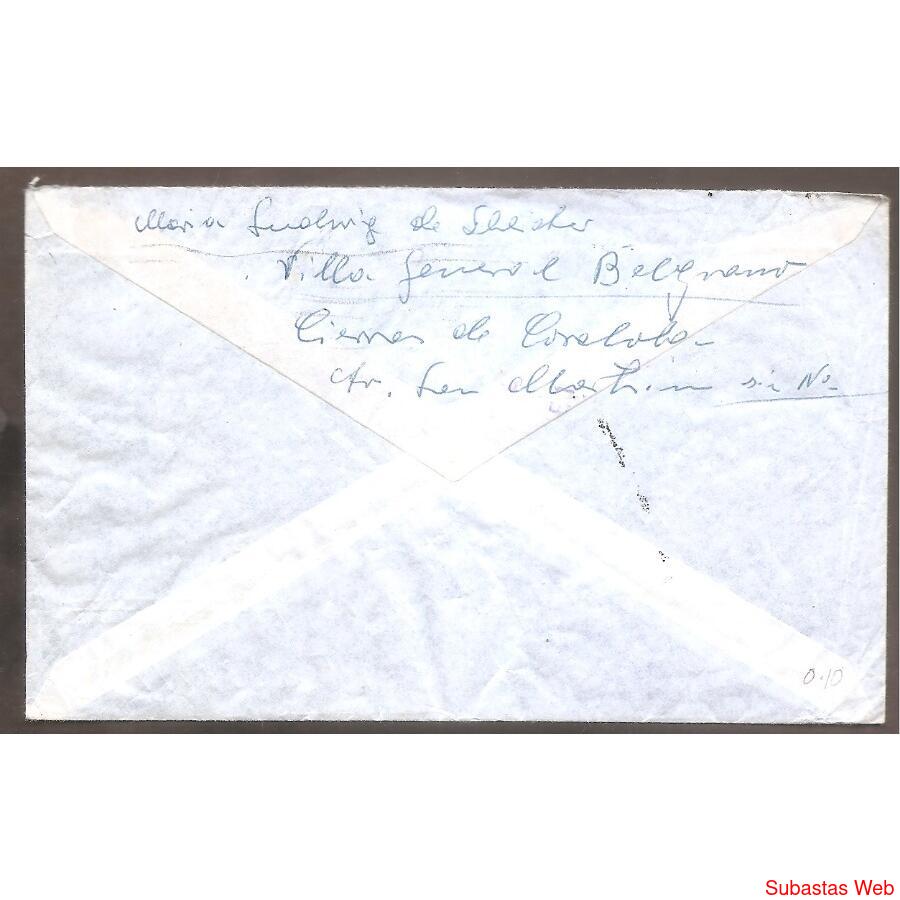 Maria Ludwig de
Villa General Belgrano
Cierras de Cordoba
Av. San Marthin sin No
0.10
Subastas Web